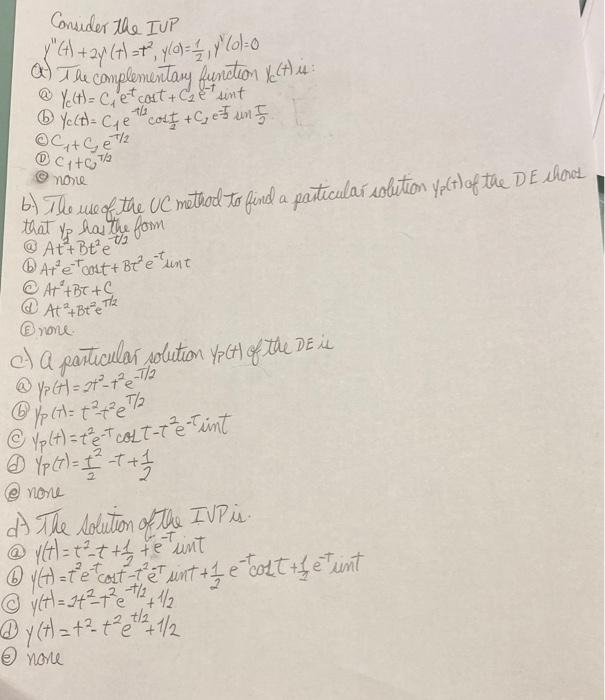 Consider the IVP
y''(t) + 2y'(t) = t², y(0) = 1/2, y'(0) = 0
a) The complementary function Yc(t) is:
ⓐ Yc(t) = C₁e^-t cost + C₂e^-t sint
ⓑ Yc(t) = C₁e^-t/2 cos t/2 + C₂e^-t/2 sin t/2
ⓒ C₁ + C₂e^-t/2
ⓓ C₁ + C₂^t/2
ⓔ none
b) The use of the UC method to find a particular solution Yp(t) of the DE shows
that yp has the form
ⓐ At² + Bt²e^-t/2
ⓑ At²e^-t cost + Bt²e^-t sint
ⓒ At² + Bt + C
ⓓ At² + Bt²e^t/2
Ⓔ none.
c) A particular solution Yp(t) of the DE is
ⓐ Yp(t) = 2t² - t²e^-t/2
ⓑ Yp(t) = t² - t²e^t/2
ⓒ Yp(t) = t²e^-t cost - t²e^-t sint
ⓓ Yp(t) = t²/2 - t + 1/2
ⓔ none
d) The solution of the IVP is.
ⓐ y(t) = t² - t + 1/2 + e^-t sint
ⓑ y(t) = t²e^-t cost - t²e^-t sint + 1/2 e^-t cost + 1/2 e^-t sint
ⓒ y(t) = 2t² - t²e^-t/2 + 1/2
ⓓ y(t) = t² - t²e^t/2 + 1/2
ⓔ none